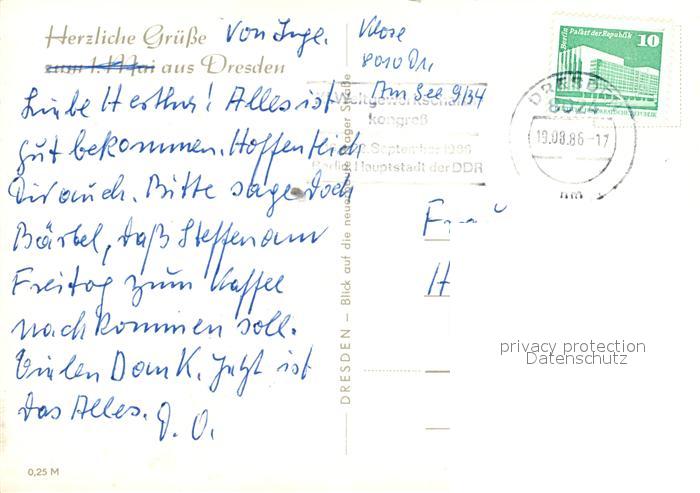 Herzliche Grüße Von Inge.
zum 1. Mai aus Dresden
Liebe Hertha! Alles ist
gut bekommen. Hoffentlich
Dir auch. Bitte sage doch
Bärbel, daß Steffen am
Freitag zum Kaffee
nach kommen soll.
Vielen Dank. Jetzt ist
das Alles. D. O.
0,25 M
DRESDEN – Blick auf die neue Straße
Klose
8010 Dr.
Am See 9/34
Weltgewerkschafts
kongreß
September 1986
Berlin Hauptstadt der DDR
Berlin, Palast der Republik
10
DRESDEN
8024
19.08.86-17
nm
Frau
H
privacy protection
Datenschutz